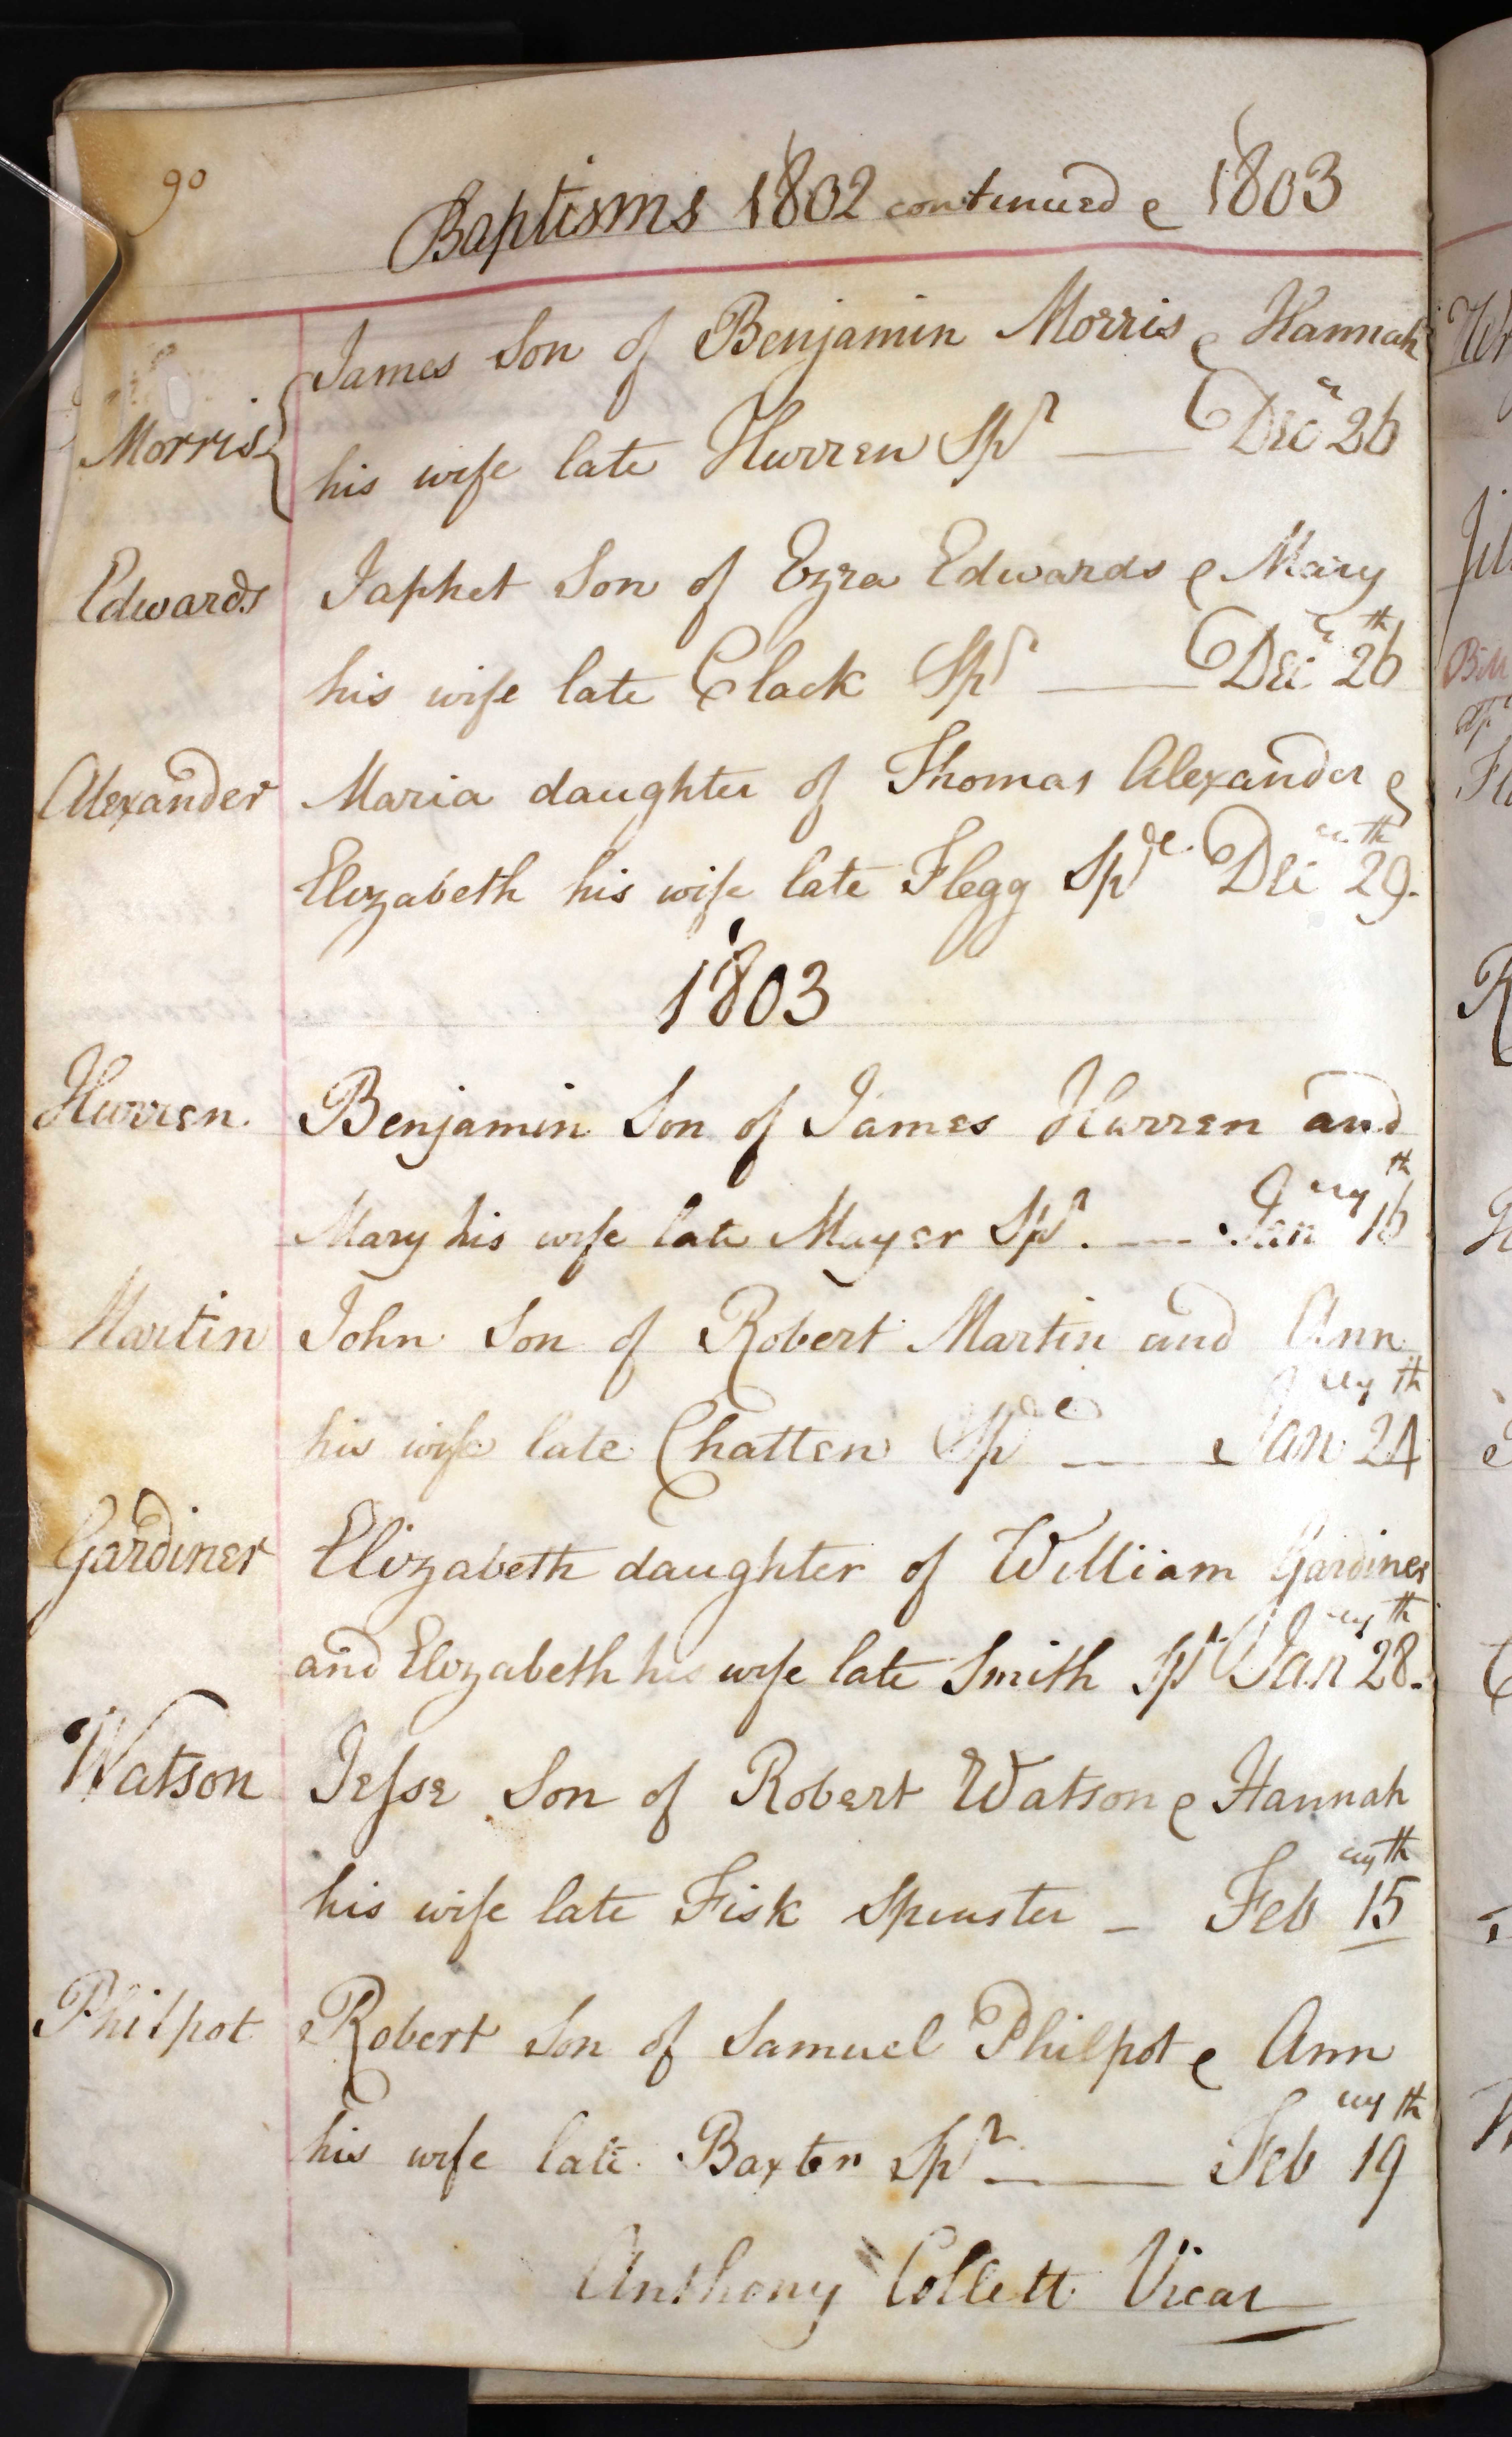 90
Baptisms 1802 continued & 1803
Morris
James Son of Benjamin Morris & Hannah
his wife late Hurren Spr Decr 26
Edwards
Japhet Son of Ezra Edwards & Mary
his wife late Clack Spr Decr 26th
Alexander
Maria daughter of Thomas Alexander &
Elizabeth his wife late Flegg Spr Decr 29th.
1803
Hurren.
Benjamin Son of James Hurren and
Mary his wife late Mayer Spr. Janury 16th
Martin
John Son of Robert Martin and Ann
his wife late Chatten Spr Janury 24th
Gardiner
Elizabeth daughter of William Gardiner
and Elizabeth his wife late Smith Spr Janury 28th.
Watson
Jesse Son of Robert Watson & Hannah
his wife late Fisk Spinster Febury 15th
Philpot
Robert Son of Samuel Philpot & Ann
his wife late Baxter Spr Febury 19th
Anthony Collett Vicar